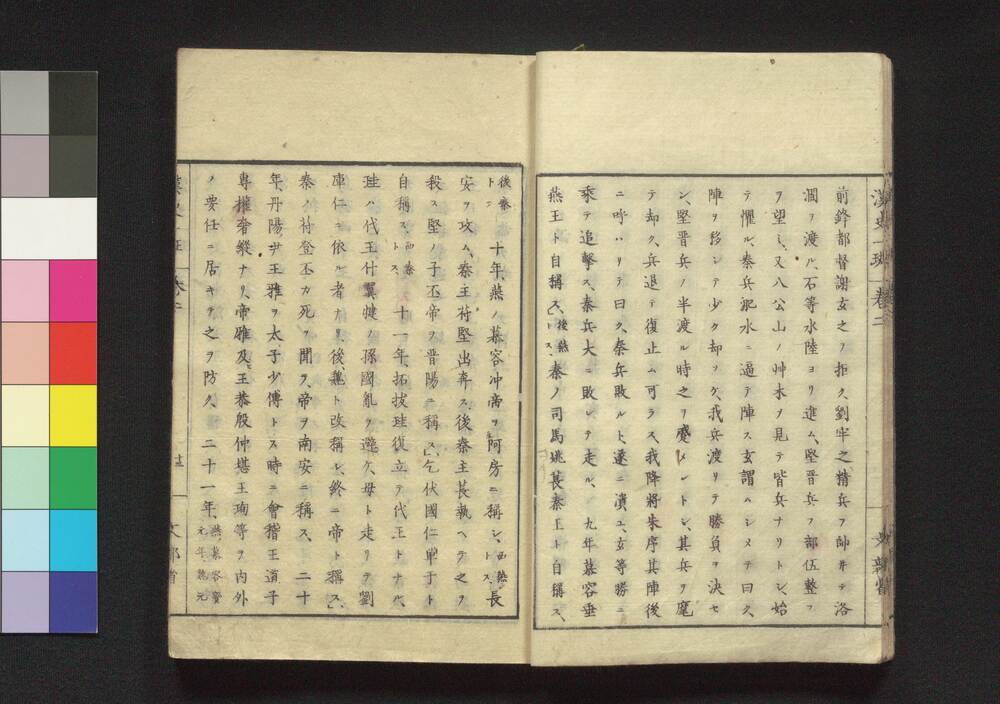 前鋒都督謝玄之ヲ拒ク劉牢之精兵ヲ帥ヰテ洛
澗ヲ渡ル、石等水陸ヨリ進ム、堅晋兵ヲ部伍整フ
ヲ望ミ、又八公山ノ艸木ヲ見テ皆兵ナリトシ、始
テ懼ル、秦兵淝水ニ逼テ陣ス玄謂ハシメテ曰ク、
陣ヲ移シテ少ク却ソケ、我兵渡リテ勝負ヲ決セ
ン、堅晋兵ノ半渡ル時之ヲ蹙メントシ、其兵ヲ麾
テ却ク、兵退テ復止ム可ラス、我降將朱序其陣後
ニ呼ハリテ曰ク、秦兵敗ルト、遂ニ潰ユ、玄等勝ニ
乘テ追擊ス、秦兵大ニ敗レテ走ル、九年慕容垂
燕王ト自稱ス、後燕トス、秦ノ司馬姚萇秦王ト自稱ス、
後秦トス 十年、燕ノ慕容冲帝ヲ阿房ニ稱シ、西燕トス、長
安ヲ攻ム、秦主苻堅出奔ス、後秦主萇執ヘテ之ヲ
殺ス堅ノ子丕帝ヲ晋陽ニ稱ス、乞伏國仁單于ト
自稱ス、西秦トス、十一年、拓拔珪復立テ代王トナル、
珪ハ代王什翼犍ノ孫國亂ヲ避ケ、母ト走リテ劉
庫仁ニ依ル者ナリ、後魏ト改稱シ、終ニ帝ト稱ス、
秦ノ苻登丕カ死ヲ聞ヲ、帝ヲ南安ニ稱ス、二十
年、丹陽尹王雅ヲ太子少傅トス時ニ會稽王道子
專權奢縱ナリ、帝雅及王恭殷仲堪王珣等ヲ内外
ノ要任ニ居キテ之ヲ防ク、二十一年、燕慕容寶元年魏元